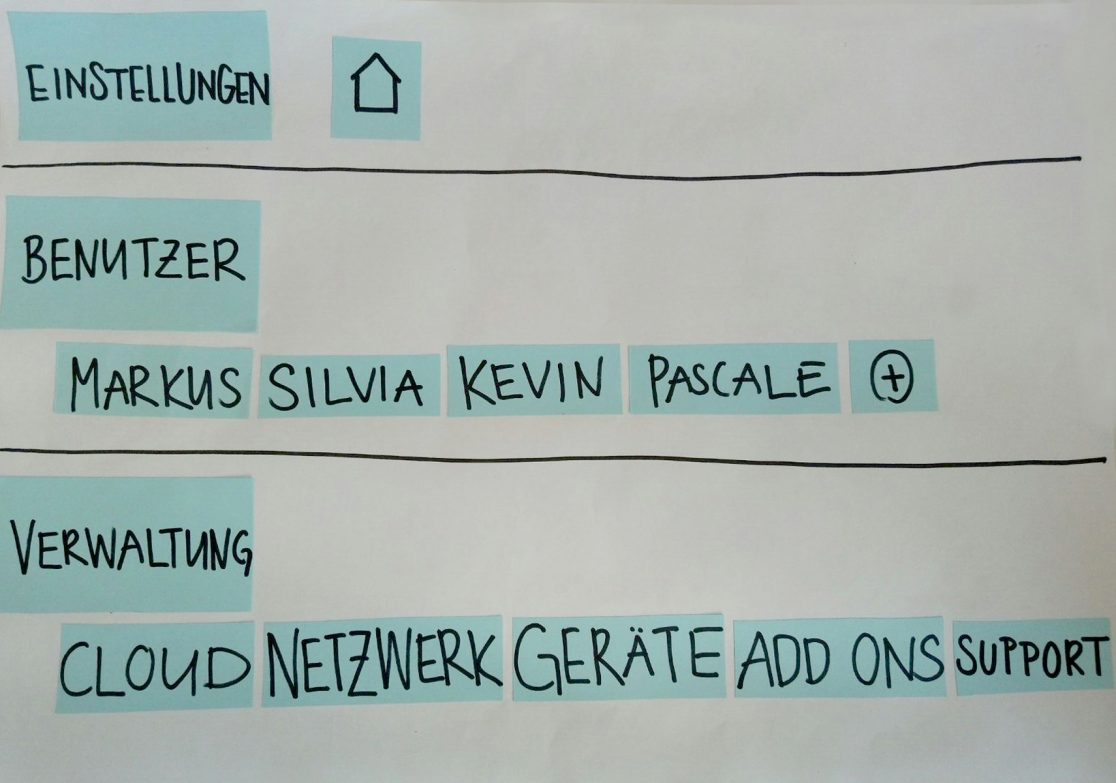 EINSTELLUNGEN
BENUTZER
MARKUS SILVIA KEVIN PASCALE +
VERWALTUNG
CLOUD NETZWERK GERÄTE ADD ONS SUPPORT